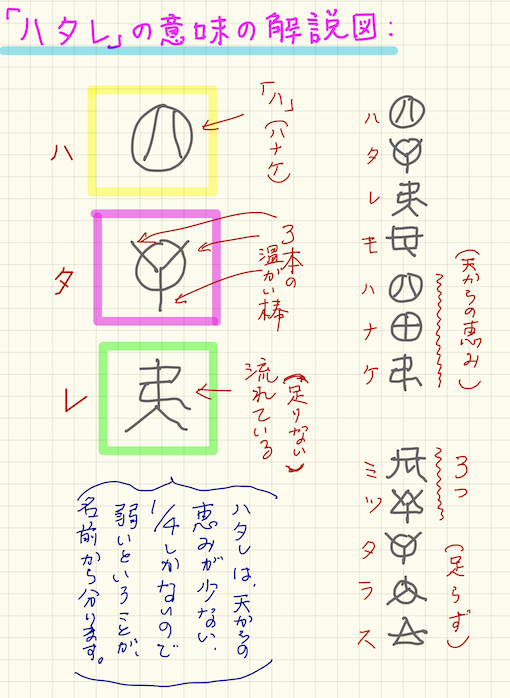 「ハタレ」の意味の解説図:
ハ
「ハ」
(ハナケ)
タ
3本の
温かい棒
レ
(足りない)
流れている
ハタレは、天からの
恵みが少ない、
1/4しかないので
弱いということが、
名前から分ります。
ハ
タ
レ
モ
ハ
ナ
ケ
(天からの恵み)
ミ
ツ
タ
ラ
ス
3つ
(足らず)